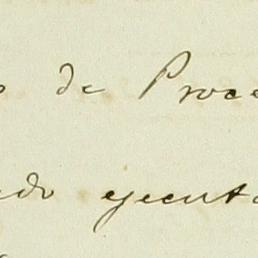 de Proce
do ejecuta